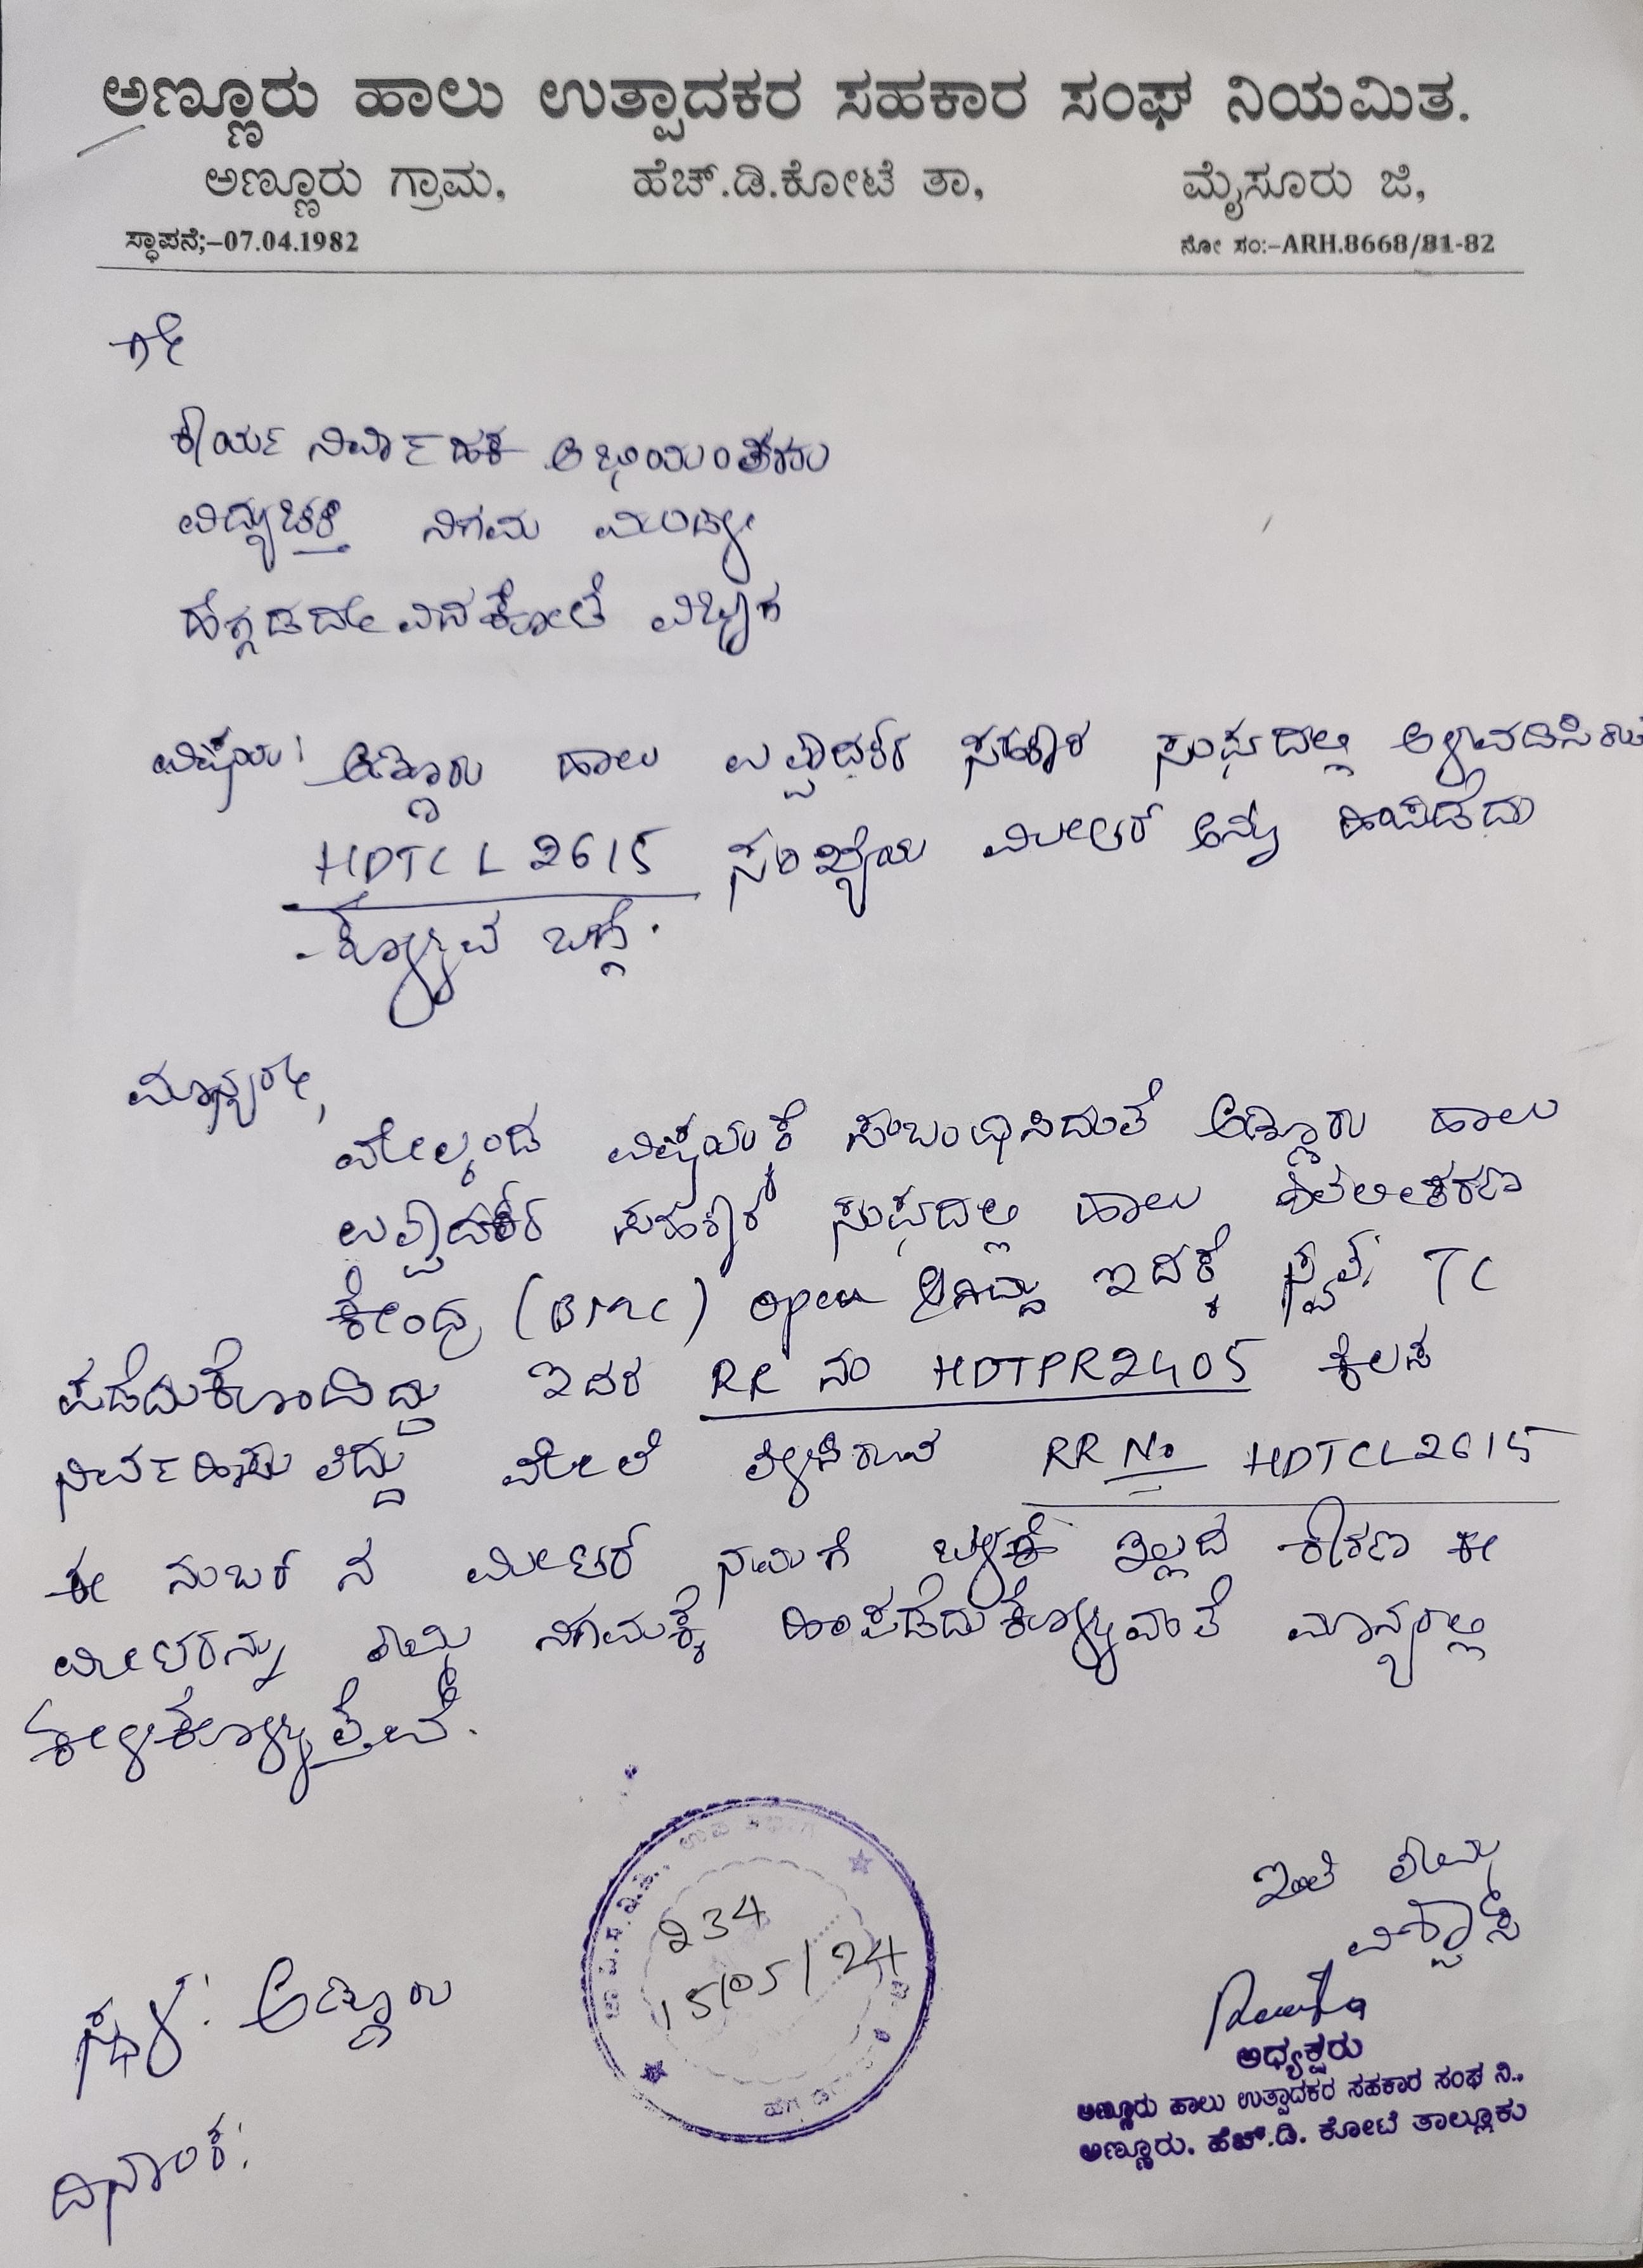 ಅಣ್ಣೂರು ಹಾಲು ಉತ್ಪಾದಕರ ಸಹಕಾರ ಸಂಘ ನಿಯಮಿತ.
ಅಣ್ಣೂರು ಗ್ರಾಮ, ಹೆಚ್.ಡಿ.ಕೋಟೆ ತಾ, ಮೈಸೂರು ಜಿ,
ಸ್ಥಾಪನೆ;-07.04.1982 ನೋ ಸಂ:-ARH.8668/81-82
ಗೇ
ಕಾರ್ಯ ನಿರ್ವಾಹಕ ಅಭಿಯಂತರರು
ವಿದ್ಯುಚಕ್ತಿ ನಿಗಮ
ಹೆಗ್ಗಡದೇವನಕೋಟೆ ವಿಭಾಗ
ವಿಷಯ: ಅಣ್ಣೂರು ಹಾಲು ಉತ್ಪಾದಕರ ಸಹಕಾರ ಸಂಘದಲ್ಲಿ
HDTCL 2615 ಸಂಖ್ಯೆಯ ಮೀಟರ್ ಅನ್ನು ಹಿಂಪಡೆದು
ಕೊಳ್ಳುವ ಬಗ್ಗೆ.
ಮಾನ್ಯರೇ,
ಮೇಲ್ಕಂಡ ವಿಷಯಕ್ಕೆ ಸಂಬಂಧಿಸಿದಂತೆ ಅಣ್ಣೂರು ಹಾಲು
ಉತ್ಪಾದಕರ ಸಹಕಾರ ಸಂಘದಲ್ಲಿ ಹಾಲು ಶಿತಲೀಕರಣ
ಕೇಂದ್ರ (BMC) open ಆಗಿದ್ದು ಇದಕ್ಕೆ ಸ್ವತಃ TC
ಪಡೆದುಕೊಂಡಿದ್ದು ಇದರ RR ನಂ HDTPR2405 ಕೆಲಸ
ನಿರ್ವಹಿಸುತಿದ್ದು ಮೇಲೆ ತಿಳಿಸಿರುವ RR No HDTCL2615
ಈ ನಂಬರ್ ನ ಮೀಟರ್ ನಮಗೆ ಬಳಕೆ ಇಲ್ಲದ ಕಾರಣ ಈ
ಮೀಟರನ್ನು ತಮ್ಮ ನಿಗಮಕ್ಕೆ ಹಿಂಪಡೆದುಕೊಳ್ಳುವಂತೆ ಮಾನ್ಯರಲ್ಲಿ
ಕೇಳಿಕೊಳ್ಳುತ್ತೇವೆ.
ಇಂತಿ ತಮ್ಮ
ವಿಶ್ವಾಸಿ
234
15/05/24
ಸ್ಥಳ: ಅಣ್ಣೂರು
ಅಧ್ಯಕ್ಷರು
ಅಣ್ಣೂರು ಹಾಲು ಉತ್ಪಾದಕರ ಸಹಕಾರ ಸಂಘ ನಿ.,
ಅಣ್ಣೂರು. ಹೆಚ್.ಡಿ. ಕೋಟೆ ತಾಲ್ಲೂಕು
ದಿನಾಂಕ: